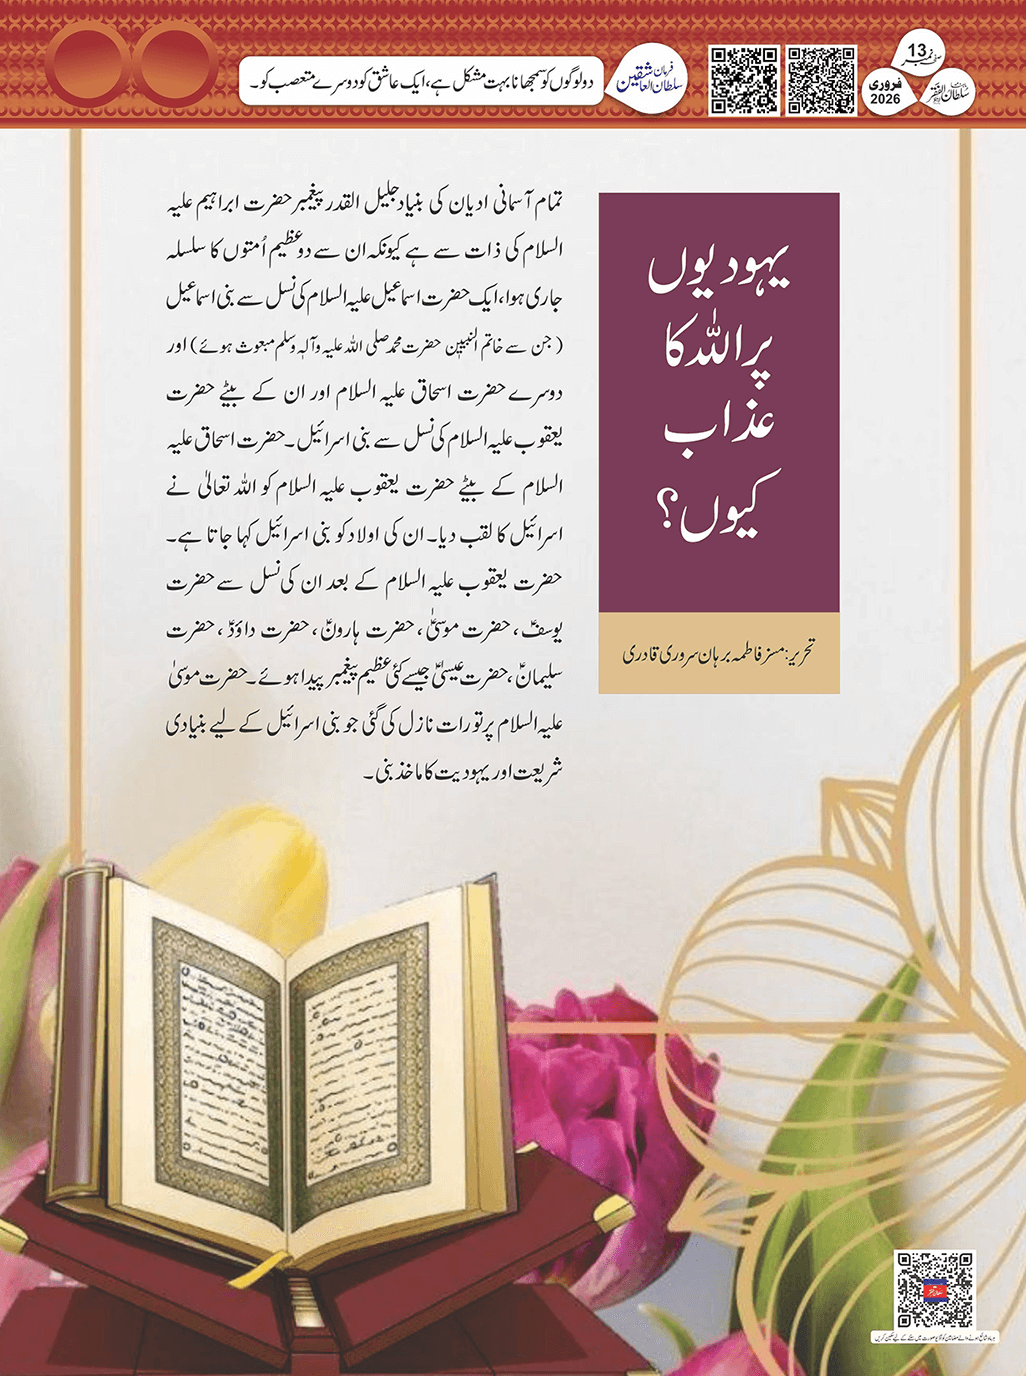 صفحہ نمبر 13
فروری
2026
سلطان الفقر
فرمان
سلطان العاشقین
دو لوگوں کو سمجھانا بہت مشکل ہے، ایک عاشق کو دوسرے متعصب کو۔
یہودیوں
پر اللہ کا
عذاب
کیوں؟
تحریر: مسز فاطمہ برہان سروری قادری
تمام آسمانی ادیان کی بنیاد جلیل القدر پیغمبر حضرت ابراہیم علیہ
السلام کی ذات سے ہے کیونکہ ان سے دو عظیم اُمتوں کا سلسلہ
جاری ہوا، ایک حضرت اسماعیل علیہ السلام کی نسل سے بنی اسماعیل
(جن سے خاتم النبیین حضرت محمد صلی اللہ علیہ وآلہٖ وسلم مبعوث ہوئے) اور
دوسرے حضرت اسحاق علیہ السلام اور ان کے بیٹے حضرت
یعقوب علیہ السلام کی نسل سے بنی اسرائیل۔ حضرت اسحاق علیہ
السلام کے بیٹے حضرت یعقوب علیہ السلام کو اللہ تعالیٰ نے
اسرائیل کا لقب دیا۔ ان کی اولاد کو بنی اسرائیل کہا جاتا ہے۔
حضرت یعقوب علیہ السلام کے بعد ان کی نسل سے حضرت
یوسفؑ، حضرت موسیٰؑ، حضرت ہارونؑ، حضرت داؤدؑ، حضرت
سلیمانؑ، حضرت عیسیٰؑ جیسے کئی عظیم پیغمبر پیدا ہوئے۔ حضرت موسیٰ
علیہ السلام پر تورات نازل کی گئی جو بنی اسرائیل کے لیے بنیادی
شریعت اور یہودیت کا ماخذ بنی۔
ہر ماہ شائع ہونے والے مضامین کو آڈیو صورت میں سننے کے لیے سکین کریں